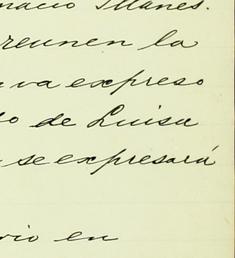 nacio Illanes.
reunen la
va expreso
de Luisa
se expresará
vio en